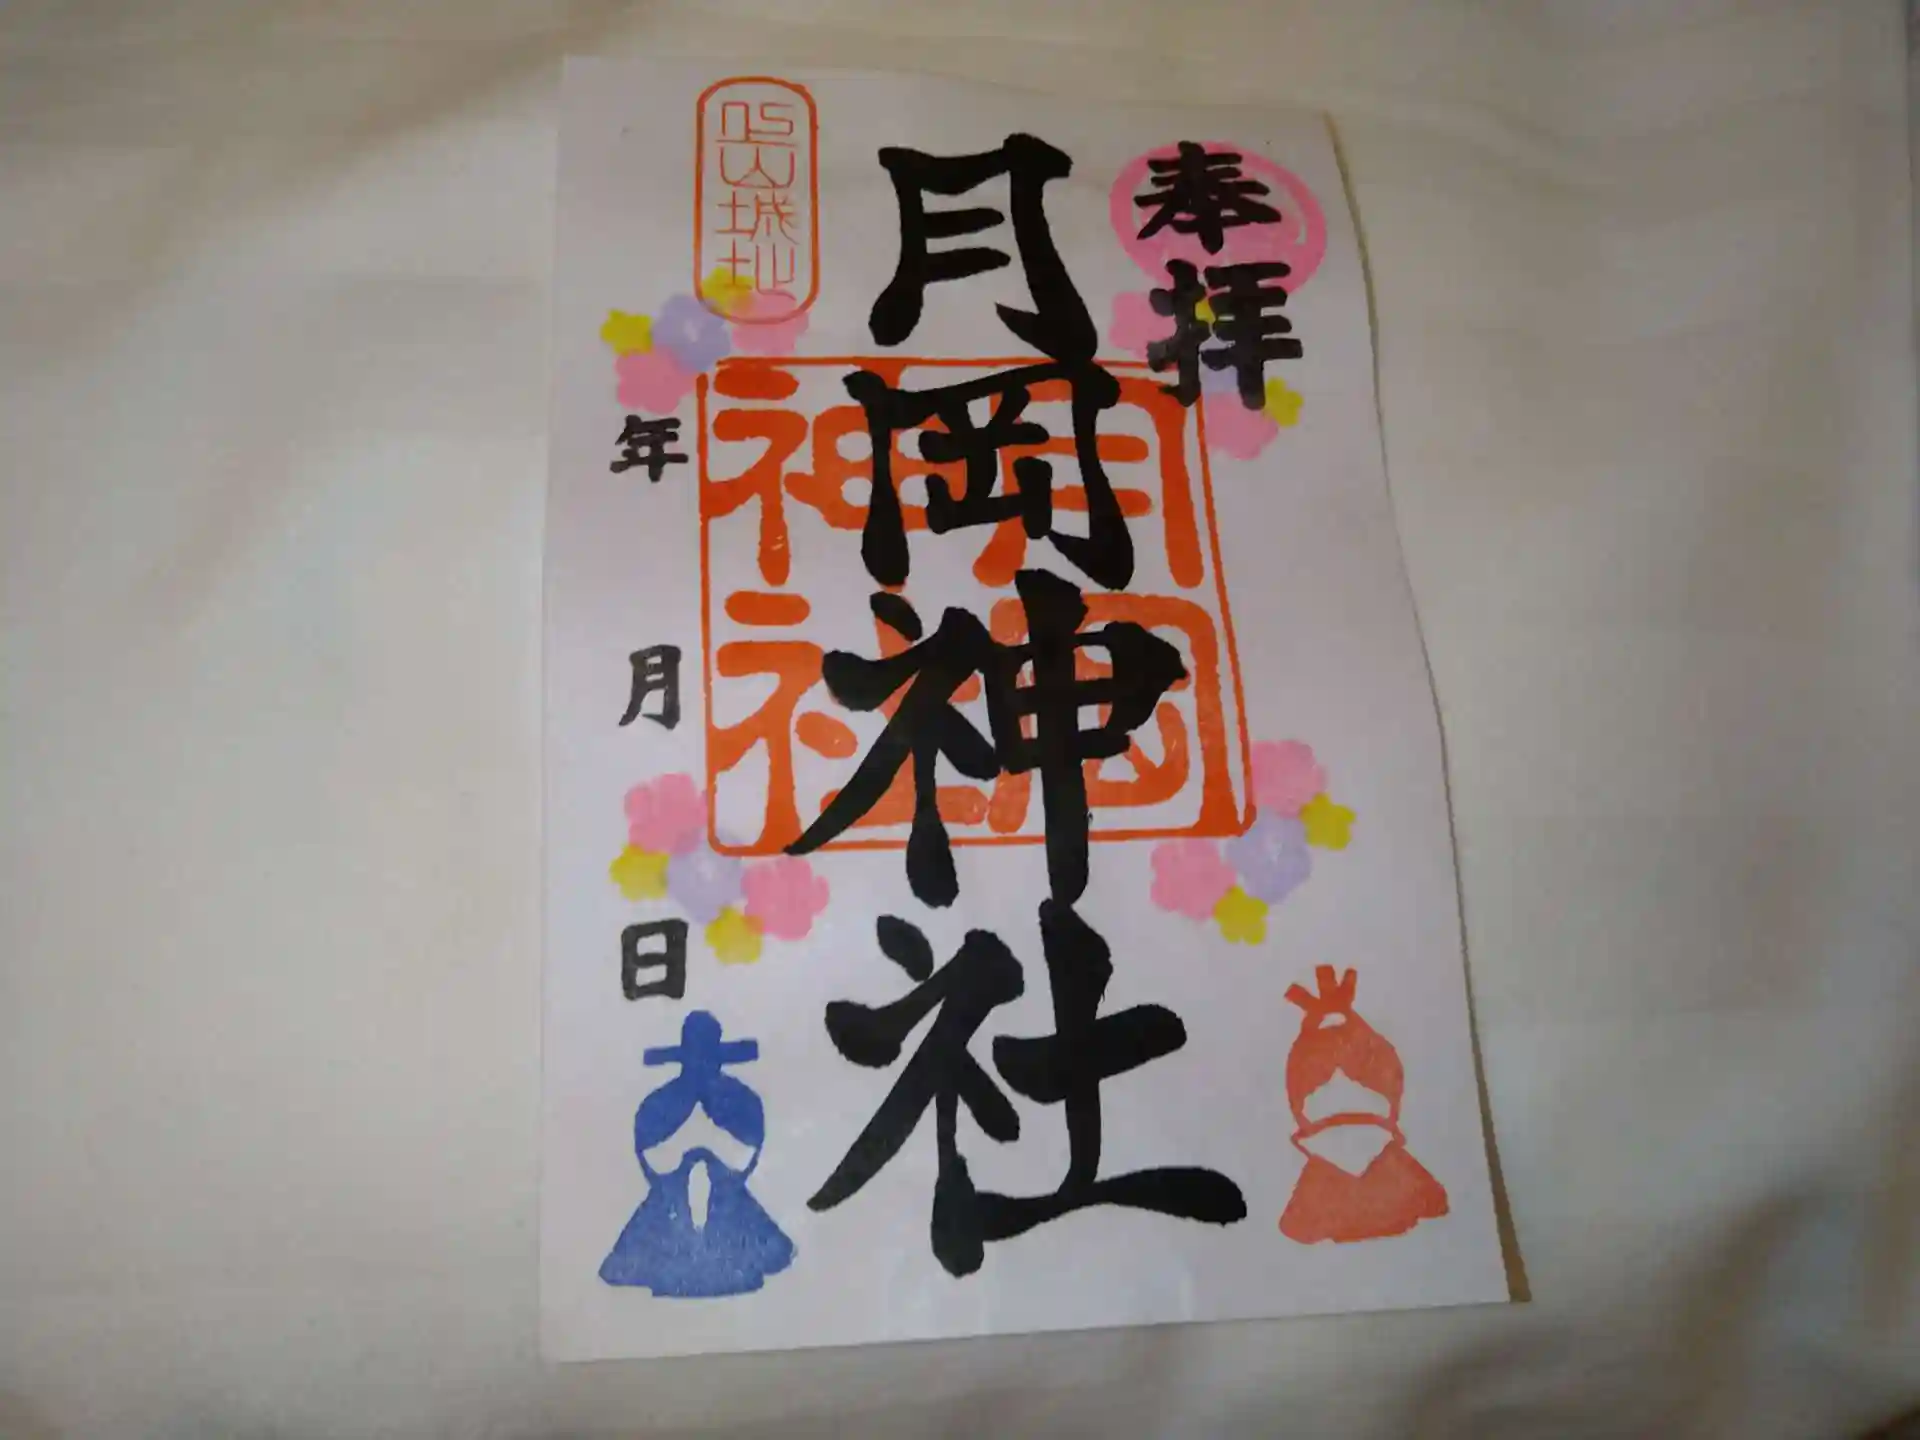 奉拝
月岡神社
月岡神社
上山城址
年 月 日